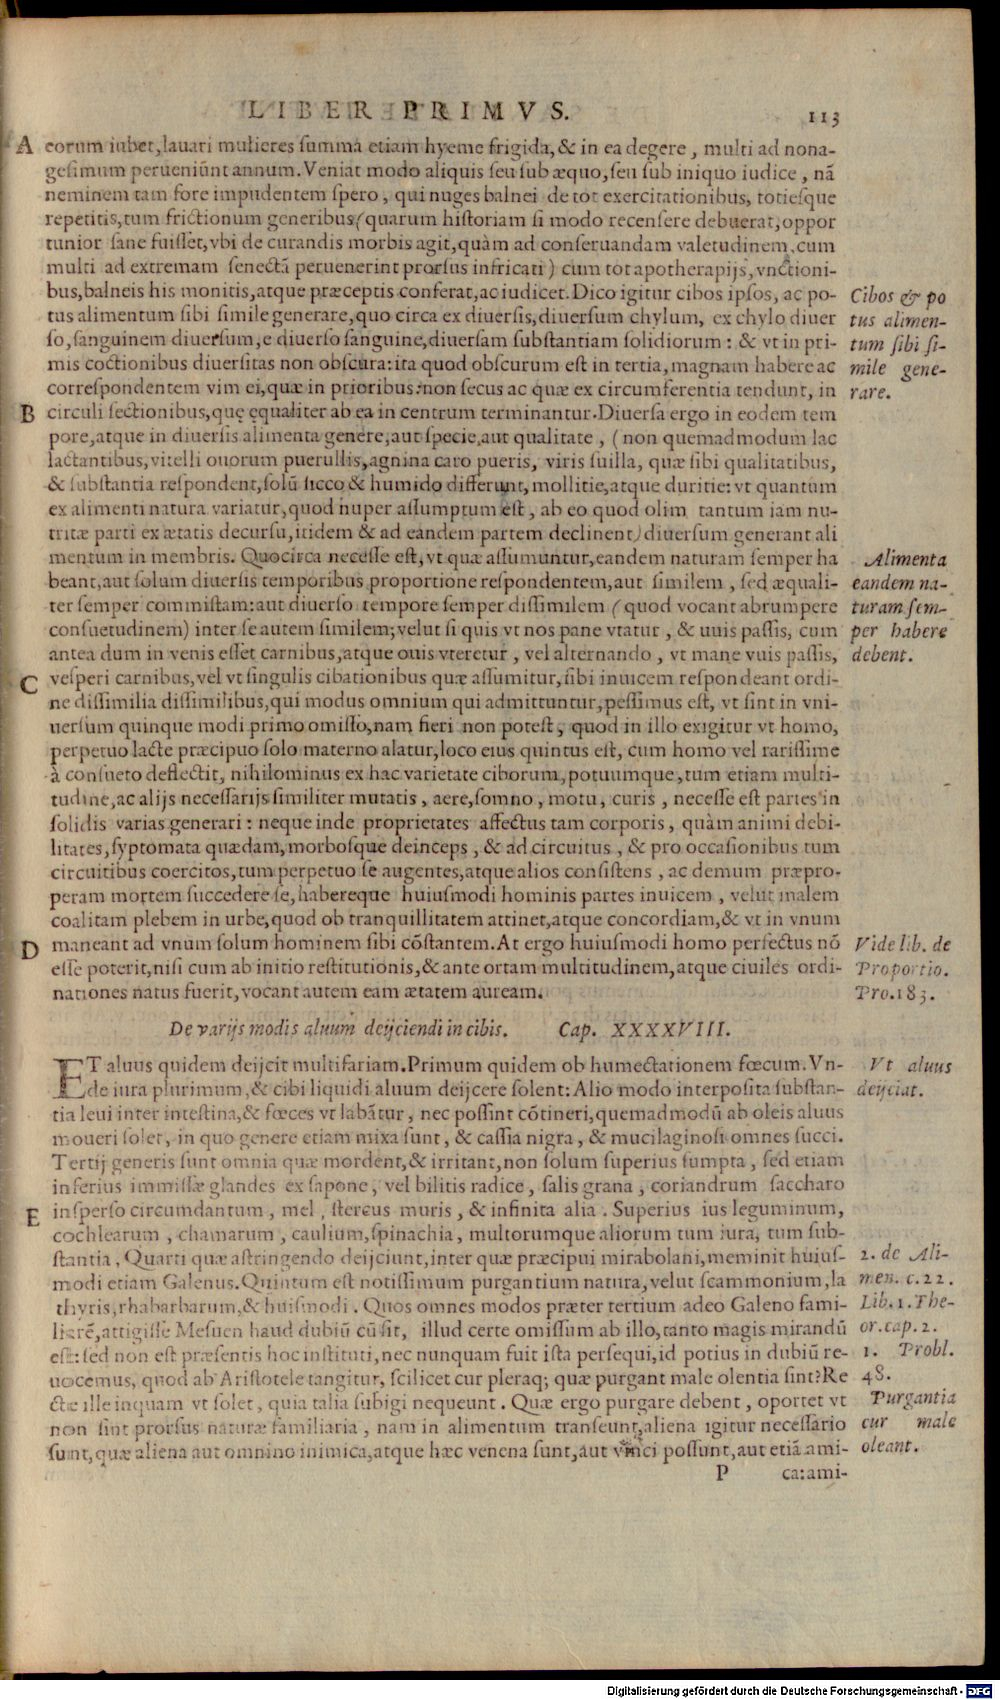 LIBER PRIMVS. 113
A eorum iubet, lauari mulieres summa etiam hyeme frigida, & in ea degere, multi ad nona-
gesimum perueniũnt annum. Veniat modo aliquis seu sub æquo, seu sub iniquo iudice, nã
neminem tam fore impudentem spero, qui nuges balnei de tot exercitationibus, totiesque
repetitis, tum frictionum generibus (quarum historiam si modo recensere debuerat, oppor
tunior sane fuisset, vbi de curandis morbis agit, quàm ad conseruandam valetudinem, cum
multi ad extremam senectã peruenerint prorsus infricati) cum tot apotherapijs, vnctioni-
bus, balneis his monitis, atque præceptis conferat, ac iudicet. Dico igitur cibos ipsos, ac po-
tus alimentum sibi simile generare, quo circa ex diuersis, diuersum chylum, ex chylo diuer
so, sanguinem diuersum, e diuerso sanguine, diuersam substantiam solidiorum: & vt in pri-
mis coctionibus diuersitas non obscura: ita quod obscurum est in tertia, magnam habere ac
correspondentem vim ei, quæ in prioribus: non secus ac quæ ex circumferentia tendunt, in
B circuli sectionibus, quę ęqualiter ab ea in centrum terminantur. Diuersa ergo in eodem tem
pore, atque in diuersis alimenta genere, aut specie, aut qualitate, (non quemadmodum lac
lactantibus, vitelli ouorum puerullis, agnina caro pueris, viris suilla, quæ sibi qualitatibus,
& substantia respondent, solũ sicco & humido differunt, mollitie, atque duritie: vt quantum
ex alimenti natura variatur, quod nuper assumptum est, ab eo quod olim tantum iam nu-
tritæ parti ex ætatis decursu, itidem & ad eandem partem declinent) diuersum generant ali
mentum in membris. Quocirca necesse est, vt quæ assumuntur, eandem naturam semper ha
beant, aut solum diuersis temporibus proportione respondentem, aut similem, sed æquali-
ter semper commistam: aut diuerso tempore semper dissimilem (quod vocant abrumpere
consuetudinem) inter se autem similem; velut si quis vt nos pane vtatur, & uuis passis, cum
antea dum in venis esset carnibus, atque ouis vteretur, vel alternando, vt mane vuis passis,
C vesperi carnibus, vel vt singulis cibationibus quæ assumitur, sibi inuicem respondeant ordi-
ne dissimilia dissimilibus, qui modus omnium qui admittuntur, pessimus est, vt sint in vni-
uersum quinque modi primo omisso, nam fieri non potest, quod in illo exigitur vt homo,
perpetuo lacte præcipuo solo materno alatur, loco eius quintus est, cum homo vel rarissime
à consueto deflectit, nihilominus ex hac varietate ciborum, potuumque, tum etiam multi-
tudine, ac alijs necessarijs similiter mutatis, aere, somno, motu, curis, necesse est partes in
solidis varias generari: neque inde proprietates affectus tam corporis, quàm animi debi-
litates, syptomata quædam, morbosque deinceps, & ad circuitus, & pro occasionibus tum
circuitibus coercitos, tum perpetuo se augentes, atque alios consistens, ac demum præpro-
peram mortem succedere se, habereque huiusmodi hominis partes inuicem, velut malem
coalitam plebem in urbe, quod ob tranquillitatem attinet, atque concordiam, & vt in vnum
D maneant ad vnum solum hominem sibi cõstantem. At ergo huiusmodi homo perfectus nõ
esse poterit, nisi cum ab initio restitutionis, & ante ortam multitudinem, atque ciuiles ordi-
nationes natus fuerit, vocant autem eam ætatem auream.
Cibos & po
tus alimen-
tum sibi si-
mile gene-
rare.
Alimenta
eandem na-
turam sem-
per habere
debent.
Vide lib. de
Proportio.
Pro. 183.
De varijs modis aluum deijciendi in cibis. Cap. XXXXVIII.
ET aluus quidem deijcit multifariam. Primum quidem ob humectationem fœcum. Vn-
de iura plurimum, & cibi liquidi aluum deijcere solent: Alio modo interposita substan-
tia leui inter intestina, & fœces vt labãtur, nec possint cõtineri, quemadmodũ ab oleis aluus
moueri solet, in quo genere etiam mixa sunt, & cassia nigra, & mucilaginosi omnes succi.
Tertij generis sunt omnia quæ mordent, & irritant, non solum superius sumpta, sed etiam
inferius immissæ glandes ex sapone, vel bilitis radice, salis grana, coriandrum saccharo
E insperso circumdantum, mel, stercus muris, & infinita alia. Superius ius leguminum,
cochlearum, chamarum, caulium, spinachia, multorumque aliorum tum iura, tum sub-
stantia. Quarti quæ astringendo deijciunt, inter quæ præcipui mirabolani, meminit huius-
modi etiam Galenus. Quintum est notissimum purgantium natura, velut scammonium, la
thyris, rhabarbarum, & huismodi. Quos omnes modos præter tertium adeo Galeno fami-
liarẽ, attigisse Mesuen haud dubiũ cũ sit, illud certe omissum ab illo, tanto magis mirandũ
est: sed non est præsentis hoc instituti, nec nunquam fuit ista persequi, id potius in dubiũ re-
uocemus, quod ab Aristotele tangitur, scilicet cur pleraq; quæ purgant male olentia sint? Re
cte ille inquam vt solet, quia talia subigi nequeunt. Quæ ergo purgare debent, oportet vt
non sint prorsus naturæ familiaria, nam in alimentum transeunt, aliena igitur necessario
sunt, quæ aliena aut omnino inimica, atque hæc venena sunt, aut vinci possunt, aut etiã ami-
P ca: ami-
Vt aluus
deijciat.
2. de Ali-
men. c. 22.
Lib. 1. The-
or. cap. 2.
1. Probl.
48.
Purgantia
cur male
oleant.
Digitalisierung gefördert durch die Deutsche Forschungsgemeinschaft - DFG